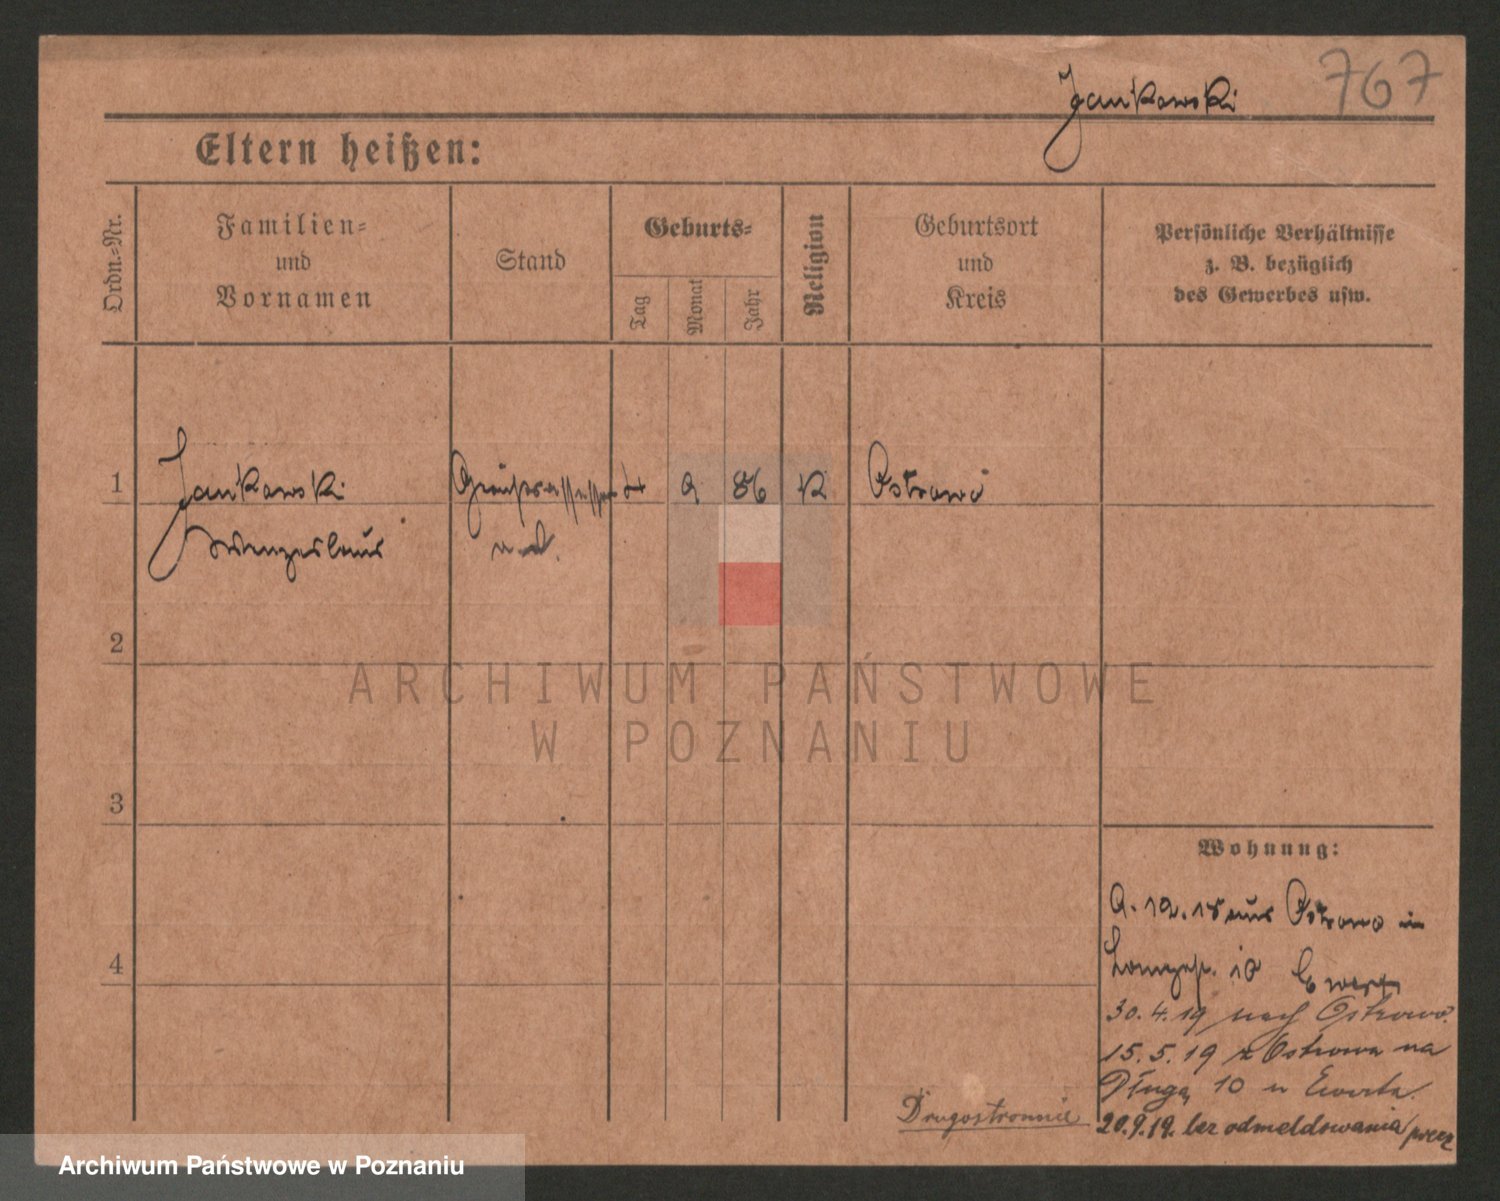 767
Jankowski
Eltern heißen:
Ordn.-Nr.
Familien-
und
Vornamen
Stand
Geburts-
Tag
Monat
Jahr
Religion
Geburtsort
und
Kreis
Persönliche Verhältnisse
z. B. bezüglich
des Gewerbes usw.
1
Jankowski
9
86
K
Ostrowo
Wenzeslaus
2
ARCHIWUM PAŃSTWOWE
W POZNANIU
3
Wohnung:
9.12.18 aus Ostrowo in
4
30.4.19 nach Ostrowo.
15.5.19 z Ostrowa na
Długą 10 u Ewerta.
Drugostronnie
20.9.19. bez odmeldowania precz
Archiwum Państwowe w Poznaniu